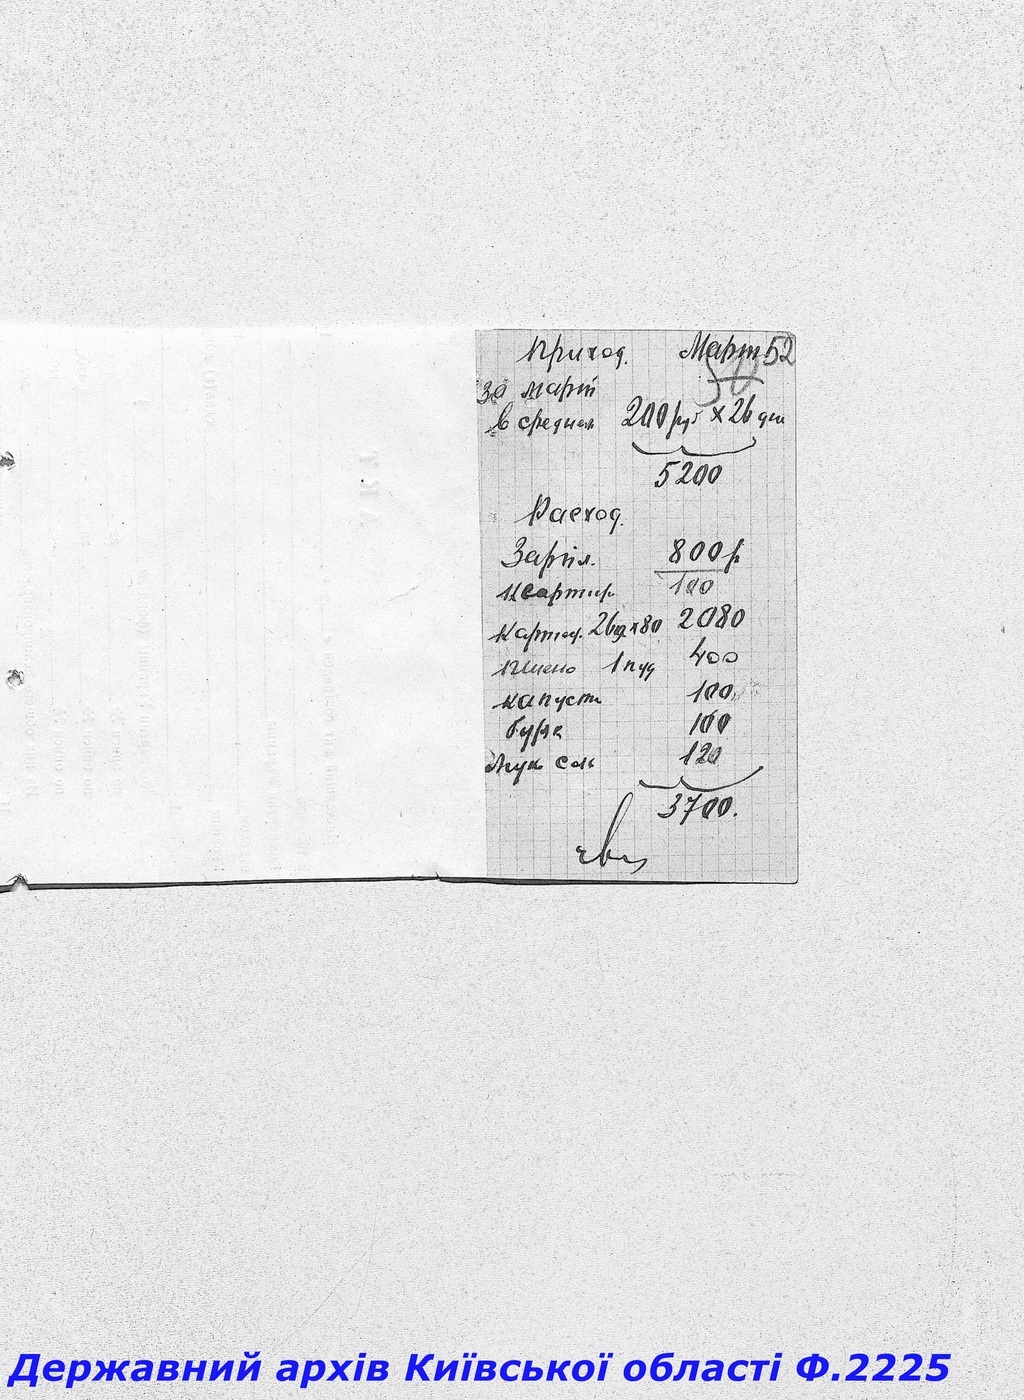 Приход. Март 52
50
за март
в среднем 200 руб × 26 дн
5200
Расход.
Зарпл. 800 р
Квартир. 100
Картоф. 26 д. × 80 2080
Пшено 1 пуд 400
Капуста 100
Буряк 100
Лук соль 120
3700.
Державний архів Київської області Ф.2225